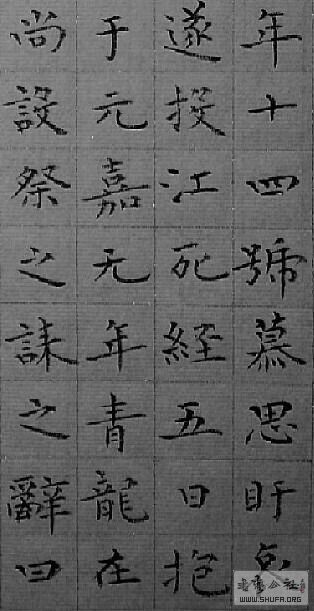 年十四號慕思盱
遂投江死經五日抱
于元嘉元年青龍在
尚設祭之誄之辭曰
WWW.SHUFA.ORG